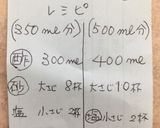 レシピ
(350ml分) (500ml分)
酢 300ml 400ml
砂 大さじ8杯 大さじ10杯
塩 小さじ2杯 塩小さじ2杯